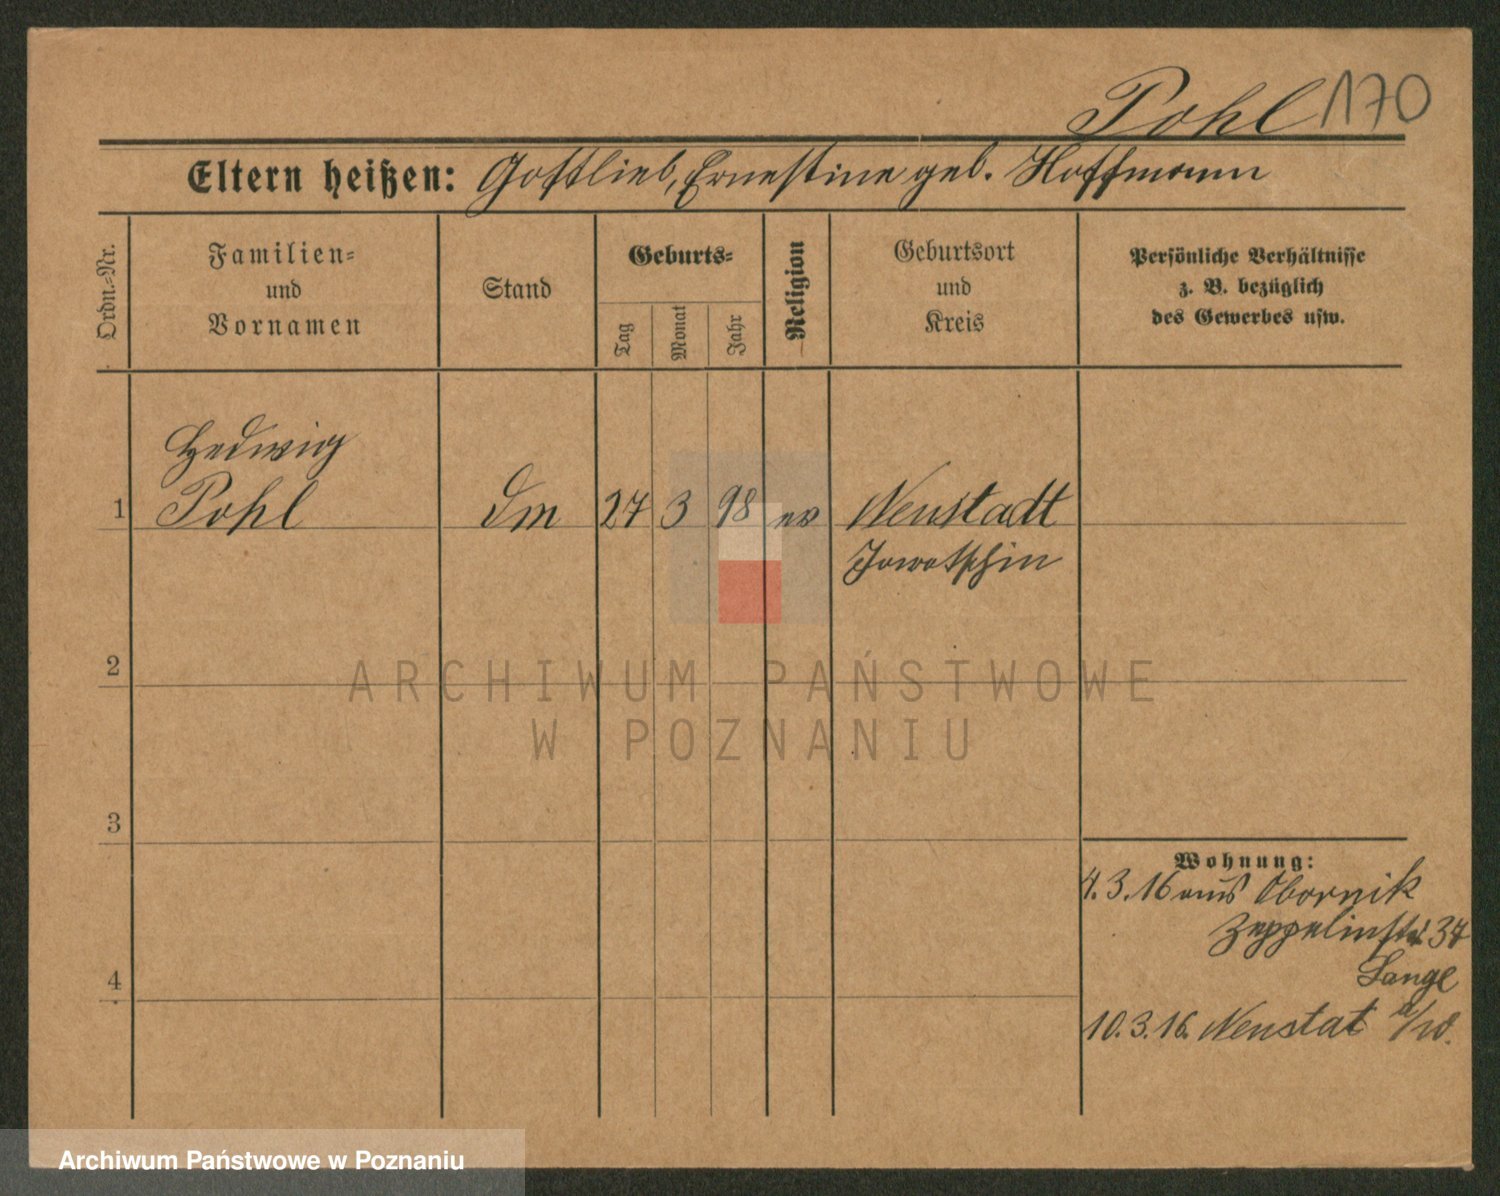 Pohl 170
Eltern heißen: Gottlieb, Ernestine geb. Hoffmann
Ordn.-Nr.
Familien-
und
Vornamen
Stand
Geburts-
Tag
Monat
Jahr
Religion
Geburtsort
und
Kreis
Persönliche Verhältnisse
z. B. bezüglich
des Gewerbes usw.
Hedwig
1 Pohl Dm 27 3 98 ev Neustadt
Jarotschin
2
ARCHIWUM PAŃSTWOWE
W POZNANIU
3
Wohnung:
4.3.16 aus Obornik
Zeppelinstr 37
Lange
4
10.3.16. Neustat a/W.
Archiwum Państwowe w Poznaniu